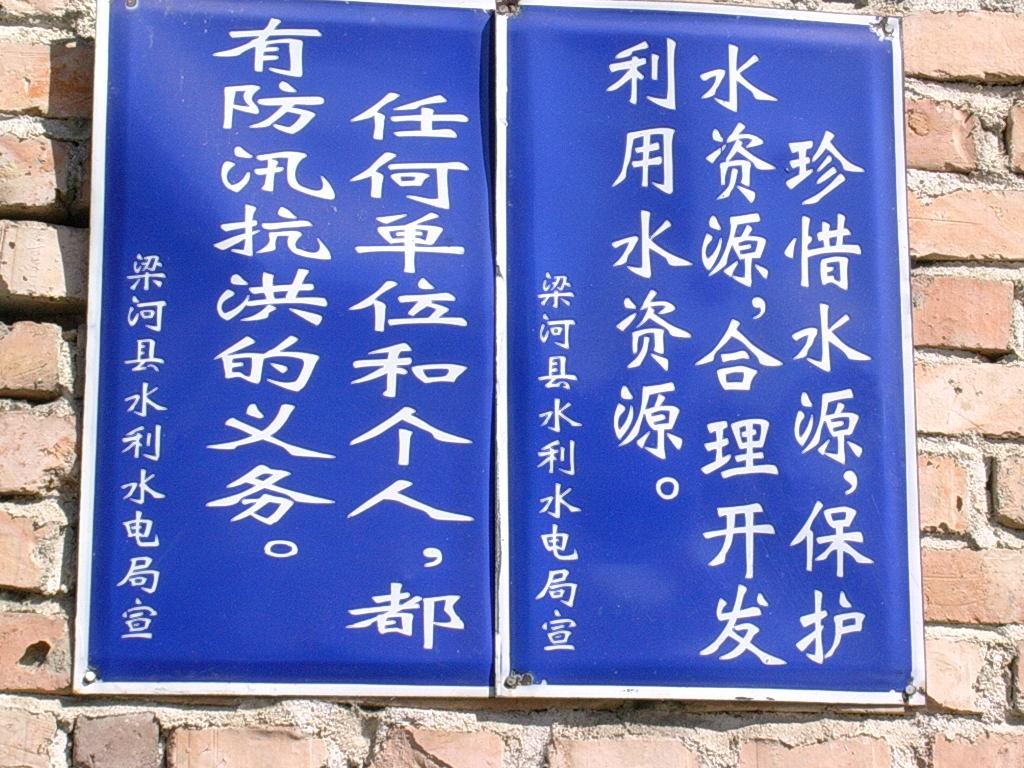 珍惜水源，保护
水资源，合理开发
利用水资源。
梁河县水利水电局宣
任何单位和个人，都
有防汛抗洪的义务。
梁河县水利水电局宣